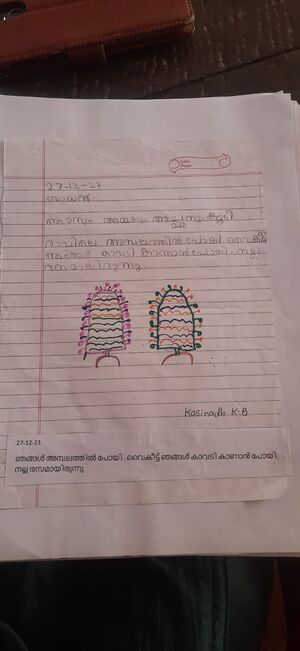 Date
Page
27-12-23
ബുധൻ
ഞാനും അമ്മയും അച്ഛനും കൂടി
രാവിലെ അമ്പലത്തിൽ പോയി വൈകീട്ട്
ഞങ്ങൾ കാവടി കാണാൻ പോയി നല്ല
രസമായിരുന്നു.
Kasinadh K.B
27-12-23
ഞങ്ങൾ അമ്പലത്തിൽ പോയി . വൈകീട്ട് ഞങ്ങൾ കാവടി കാണാൻ പോയി.
നല്ല രസമായിരുന്നു